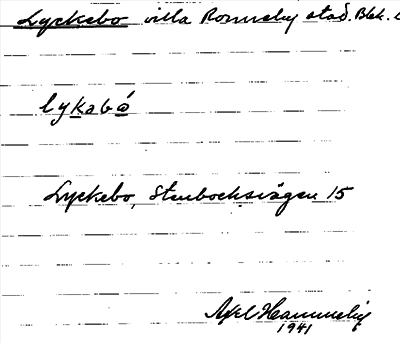 Lyckebo villa Ronneby stad. Blek. l
lykabó
Lyckebo, Stenbocksvägen 15
Axel Hammelig
1941